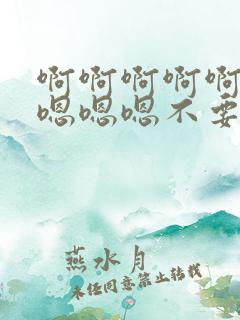 啊啊啊啊啊
嗯嗯嗯不要
燕水月
未经同意禁止转载